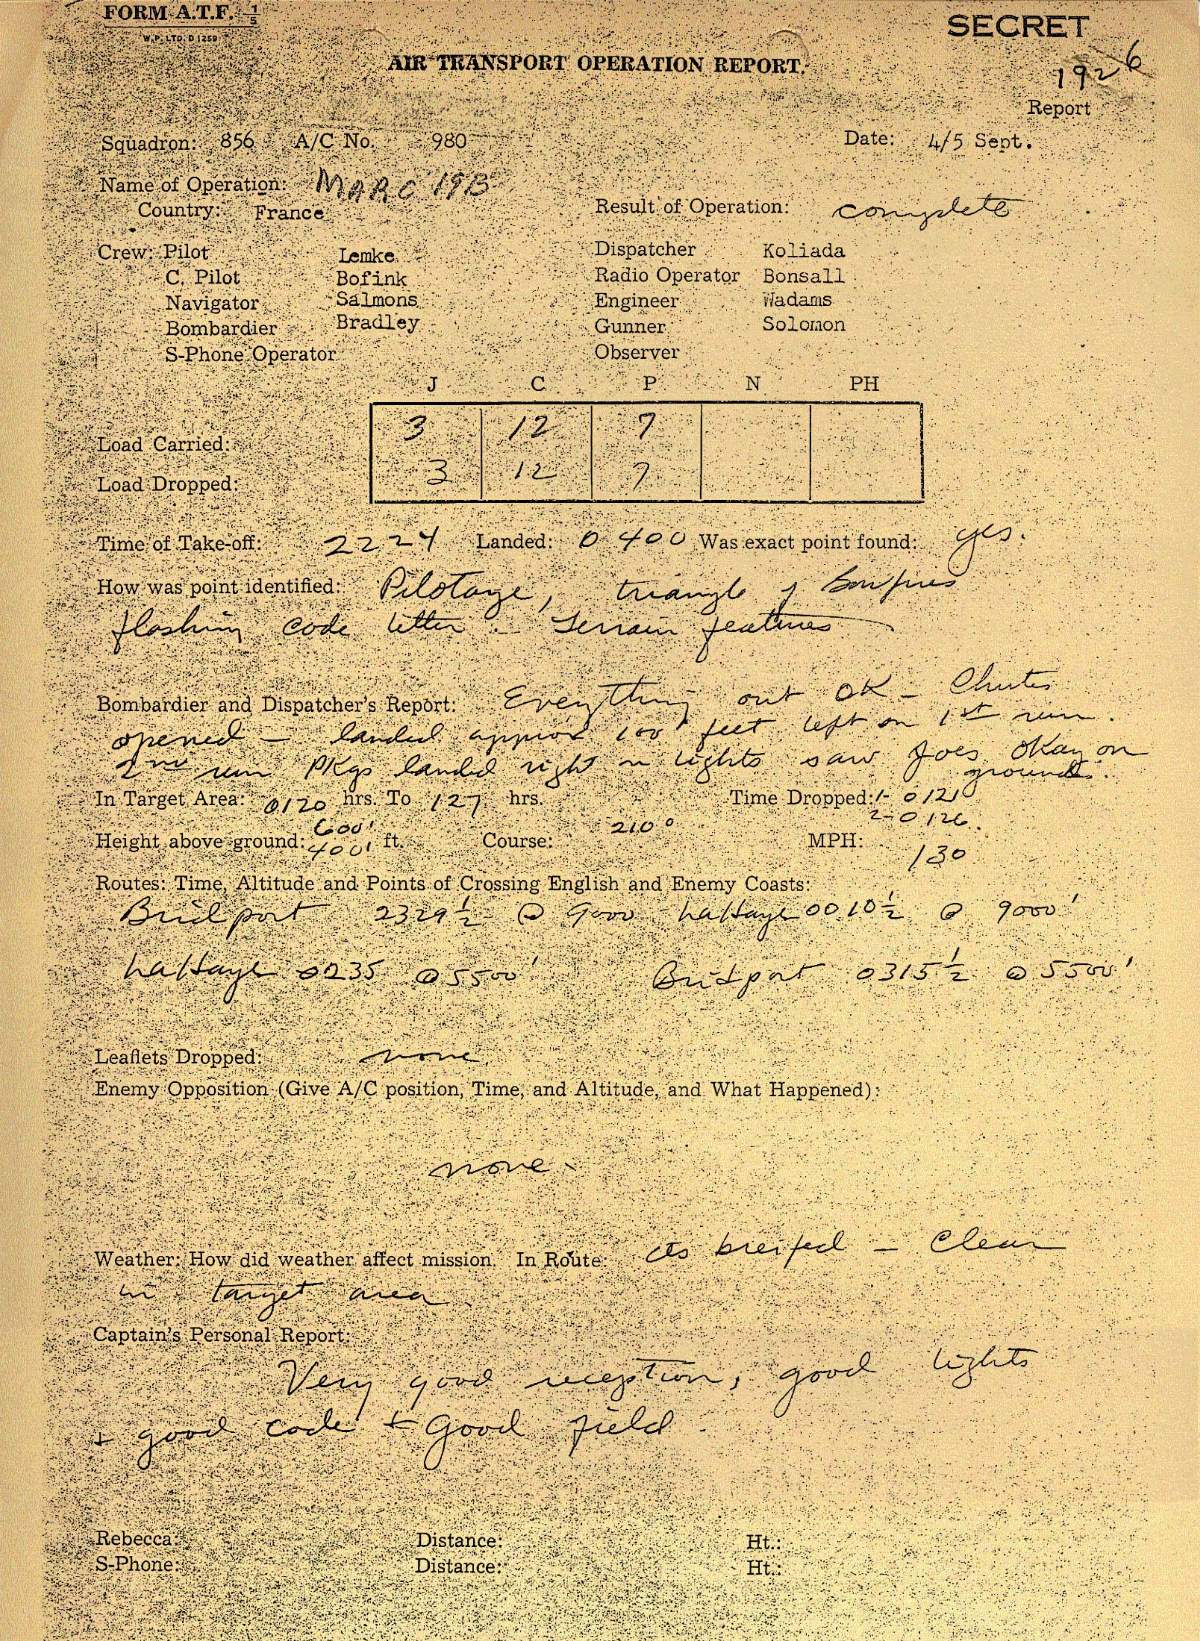 FORM A.T.F. 1/5
W.P. LTD. D 1259
SECRET
AIR TRANSPORT OPERATION REPORT.
1926
Report
Squadron: 856 A/C No. 980 Date: 4/5 Sept.
Name of Operation: MARC 19B
Country: France Result of Operation: complete
Crew: Pilot Lemke Dispatcher Koliada
C. Pilot Bofink Radio Operator Bonsall
Navigator Salmons Engineer Wadams
Bombardier Bradley Gunner Solomon
S-Phone Operator Observer
J C P N PH
Load Carried: 3 12 7
Load Dropped: 3 12 7
Time of Take-off: 2224 Landed: 0400 Was exact point found: yes.
How was point identified: Pilotage, triangle of bonfires
flashing code letter - Terrain features
Bombardier and Dispatcher's Report: Everything out OK - Chutes
opened - landed approx 100 feet left on 1st run.
2nd run Pkgs landed right on lights saw Joes okay on
ground.
In Target Area: 0120 hrs. To 127 hrs. Time Dropped: 1- 0121
2- 0126.
Height above ground: 600' 400' ft. Course: 210° MPH: 130
Routes: Time, Altitude and Points of Crossing English and Enemy Coasts:
Bridport 2329½ @ 9000 LaHaye 0010½ @ 9000'
LaHaye 0235 @ 5500' Bridport 0315½ @ 5500'
Leaflets Dropped: none
Enemy Opposition (Give A/C position, Time, and Altitude, and What Happened):
none.
Weather: How did weather affect mission. In Route: As breifed - Clear
in target area.
Captain's Personal Report:
Very good reception, good lights
+ good code + Good field.
Rebecca: Distance: Ht.:
S-Phone: Distance: Ht.: